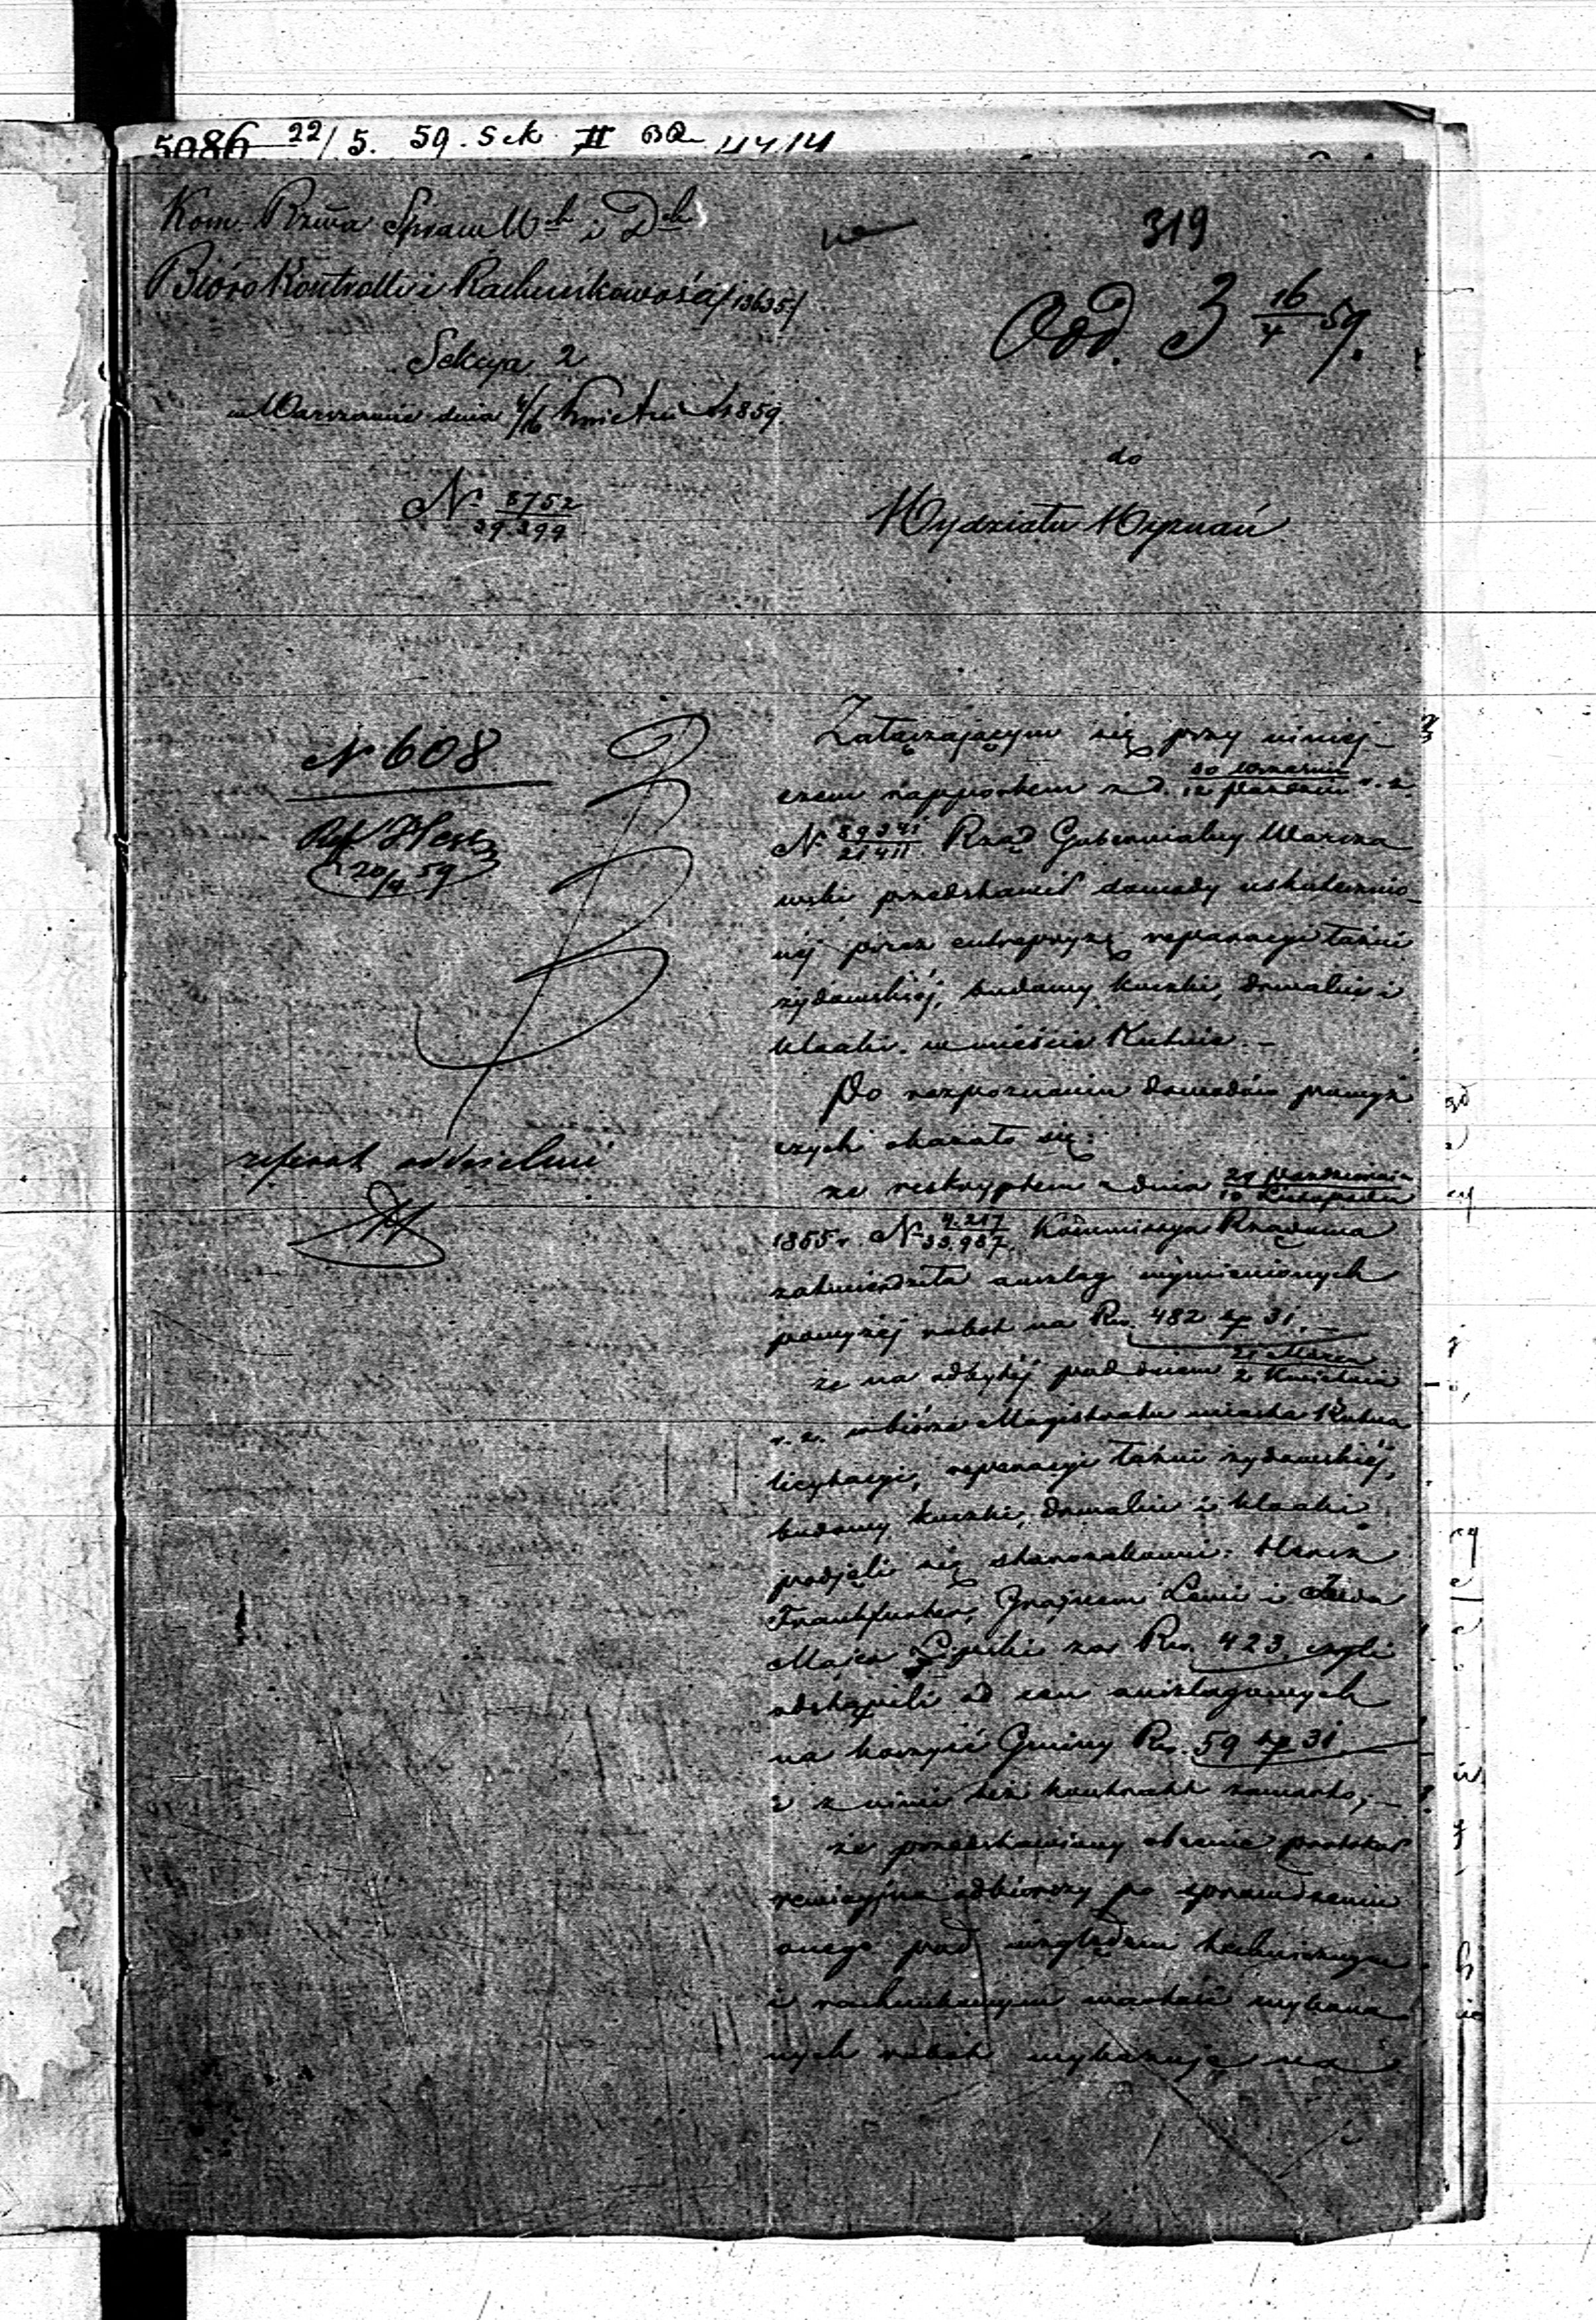 5086 22/5. 59. Sek II
319
Kom. Rzwa Spraw Wch i Dch
Bióro Kontrolli i Rachunkowości /13635/
Sekcya 2
w Warszawie dnia 4/16 Kwietnia 1859.
N. 8752/39.399
Odd. 3 16/4 59.
do
Wydziału Wyznań
N 608
Ref. Hess
20/4 59
referat oddzielni
Załączającym się przy niniej-
szem rapportem z d. 30 Września/12 Paździer. r. z.
N. 89341/21411 Rząd Gubernialny Warsza
wski przedstawił dowody uskutecznio-
nej przez entrepryzę reparacyi łaźni
żydowskiej, budowy kuczki, drwalni i
kloaki w mieście Kutnie. –
Po rozpoznaniu dowodów powyż
szych okazało się:
że reskryptem z dnia 29 Października/10 Listopada
1855 r. N. 4.217/33.987 Kommissya Rządowa
zatwierdziła anszlag wymienionych
powyżej robót na Rs. 482 kp 31. –
że na odbytej pod dniem 21 Marca/2 Kwietnia
r. z. w biórze Magistratu miasta Kutna
licytacyi, reparacyi łaźni żydowskiej,
budowy kuczki, drwalni i kloaki
podjęli się starozakonni: Hersz
Frankfurter, Gnojnem Lewi i
Majer Lipski za Rs. 423. czyli
odstąpili od cen anszlagowych
na korzyść Gminy Rs. 59 kp 31
i z nimi też kontrakt zawarto; –
że przedstawiony obecnie protokół
rewizyjno odbiorczy po sprawdzeniu
onego pod względem technicznym
i rachunkowym wartość wykona
nych robót wykazuje na